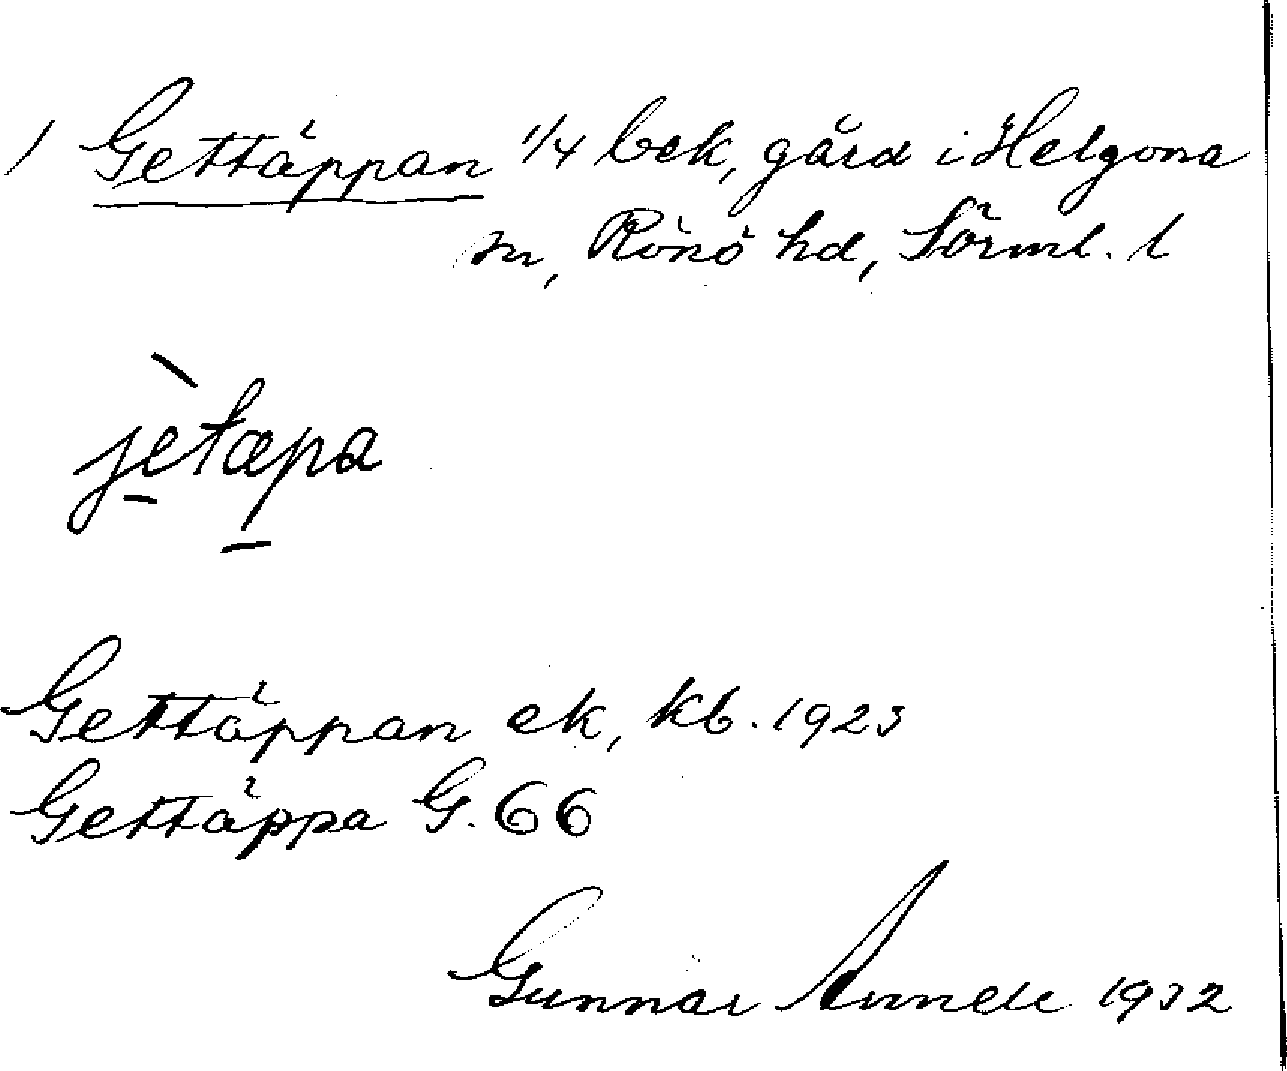 1 Gettäppan 1/4 bek, gård i Helgona
sn, Rönö hd, Sörml. l
jètæpa
Gettäppan ek, kb. 1923
Gettäppa G. 66
Gunnar 1932